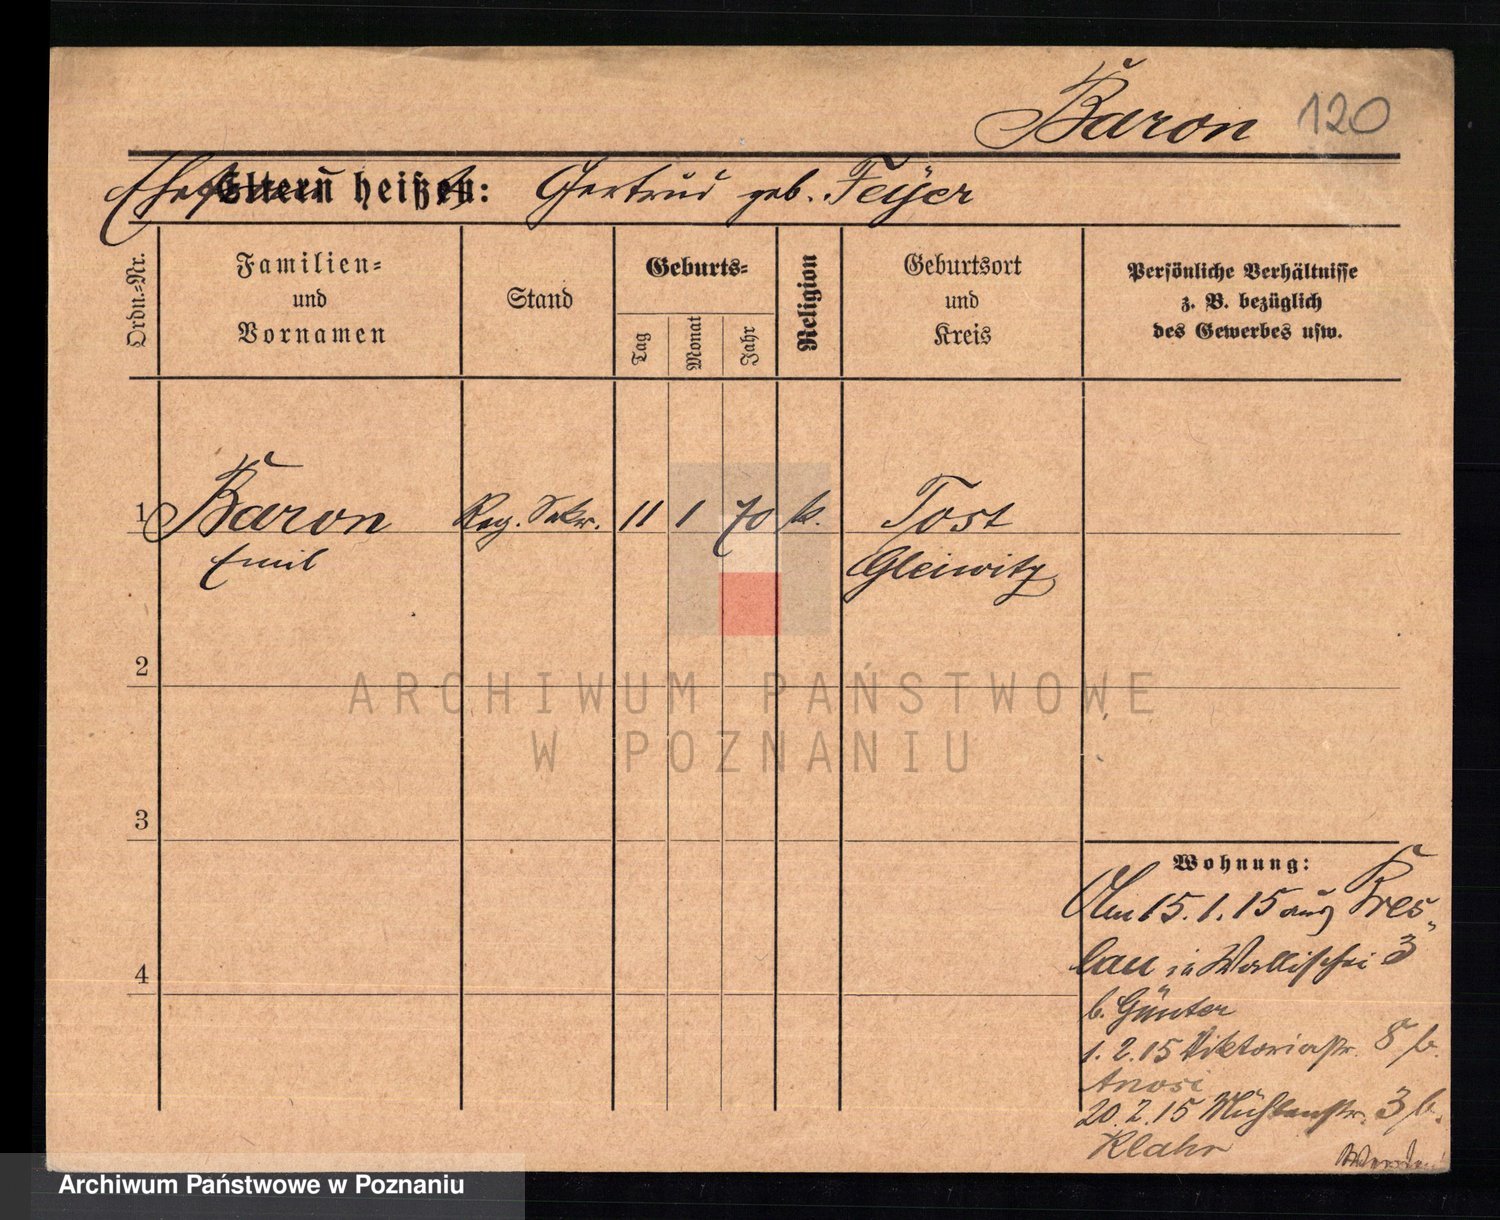 Baron 120
Ehefrau heißt: Gertrud geb. Feyer
Ordn.-Nr.
Familien-
und
Vornamen
Stand
Geburts-
Tag
Monat
Jahr
Religion
Geburtsort
und
Kreis
Persönliche Verhältnisse
z. B. bezüglich
des Gewerbes usw.
1 Baron Reg. Sekr. 11 1 70 k. Tost
Emil Gleiwitz
2
ARCHIWUM PAŃSTWOWE
W POZNANIU
3
Wohnung:
Am 15.1.15 aus Bres-
lau in Wallischei 3
4
b. Günter
1.2.15 Viktoriastr. 8 b.
Anosi
20.2.15 Mühlenstr. 3 b.
Klahr
Archiwum Państwowe w Poznaniu